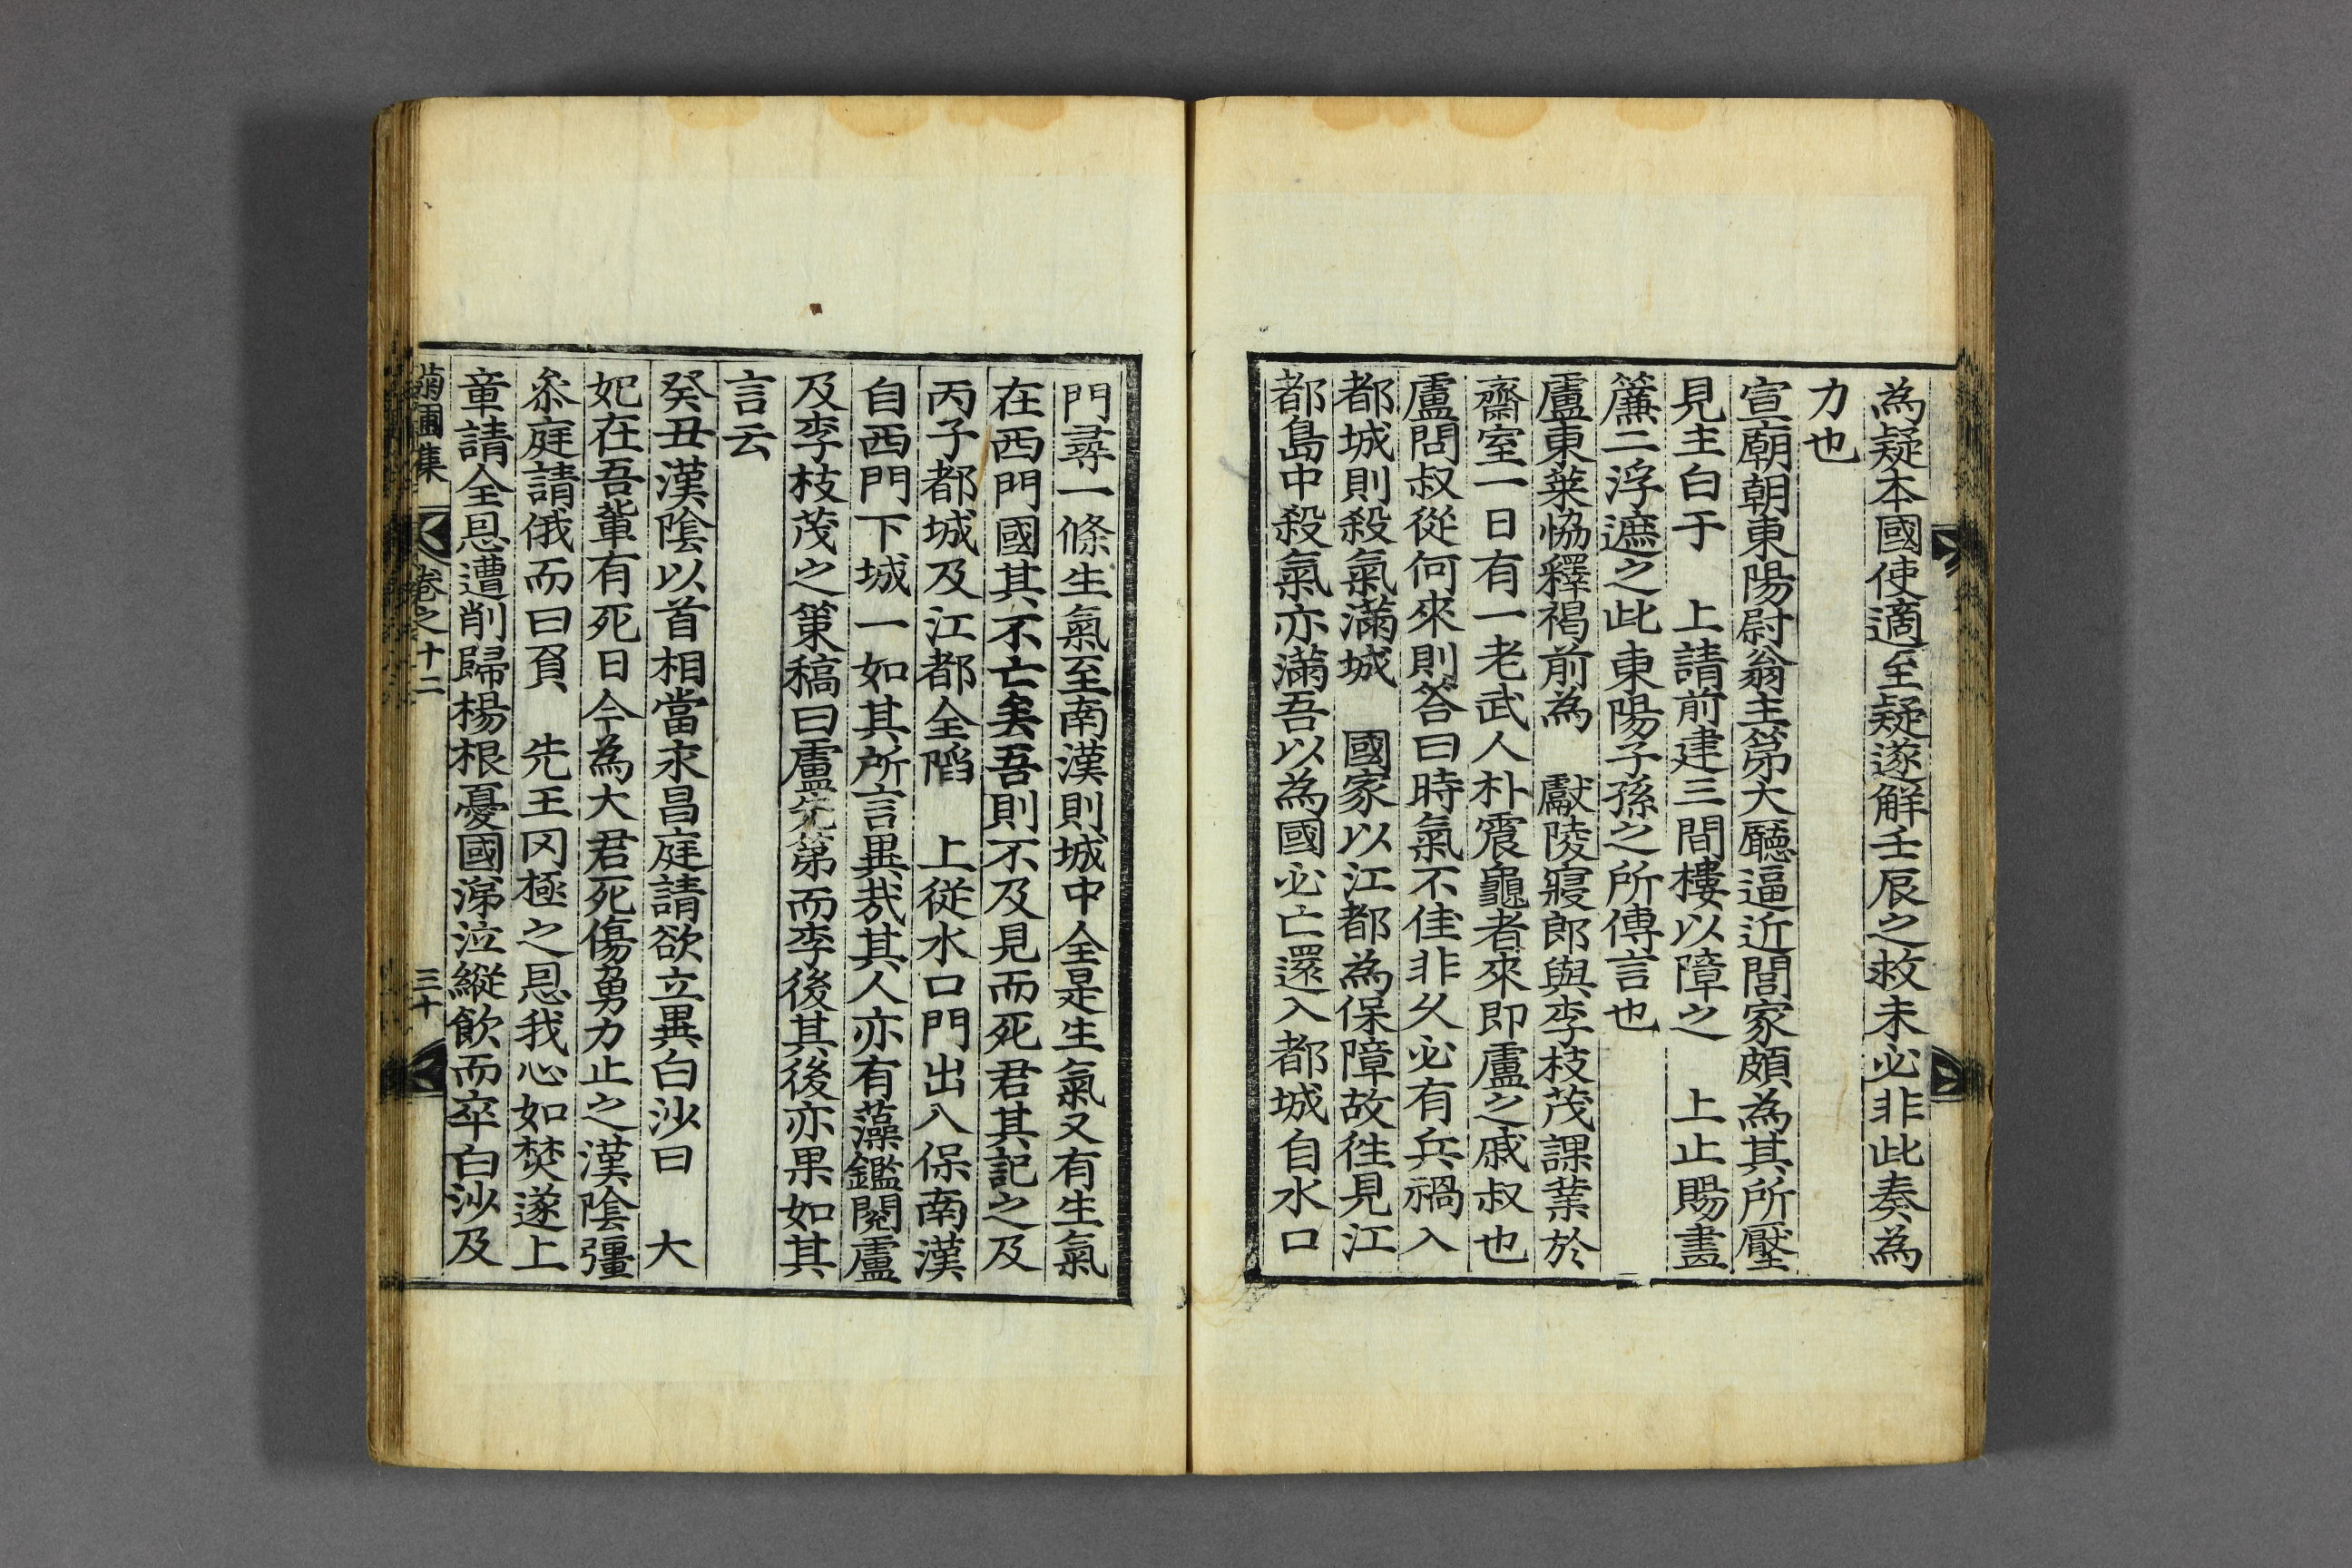 為疑本國使適至疑遂解壬辰之救未必非此奏為
力也
宣廟朝東陽尉翁主第大廳逼近閭家頗為其所壓
見主白于　上請前建三間樓以障之　上止賜畫
簾二浮遮之此東陽子孫之所傳言也
盧東萊恊釋褐前為　獻陵寢郎與李枝茂課業於
齋室一日有一老武人朴震龜者來即盧之戚叔也
盧問叔從何來則答曰時氣不佳非久必有兵禍入
都城則殺氣滿城　國家以江都為保障故徃見江
都島中殺氣亦滿吾以為國必亡還入都城自水口
門尋一條生氣至南漢則城中全是生氣又有生氣
在西門國其不亡矣吾則不及見而死君其記之及
丙子都城及江都全陷　上從水口門出入保南漢
自西門下城一如其所言異哉其人亦有藻鑑閱盧
及李枝茂之策稿曰盧先第而李後其後亦果如其
言云
癸丑漢陰以首相當永昌庭請欲立異白沙曰　大
妃在吾輩有死日今為大君死傷勇力止之漢陰彊
叅庭請俄而曰負　先王罔極之恩我心如焚遂上
章請全恩遭削歸楊根憂國涕泣縱飮而卒白沙及
菊圃集　卷之十二　三十